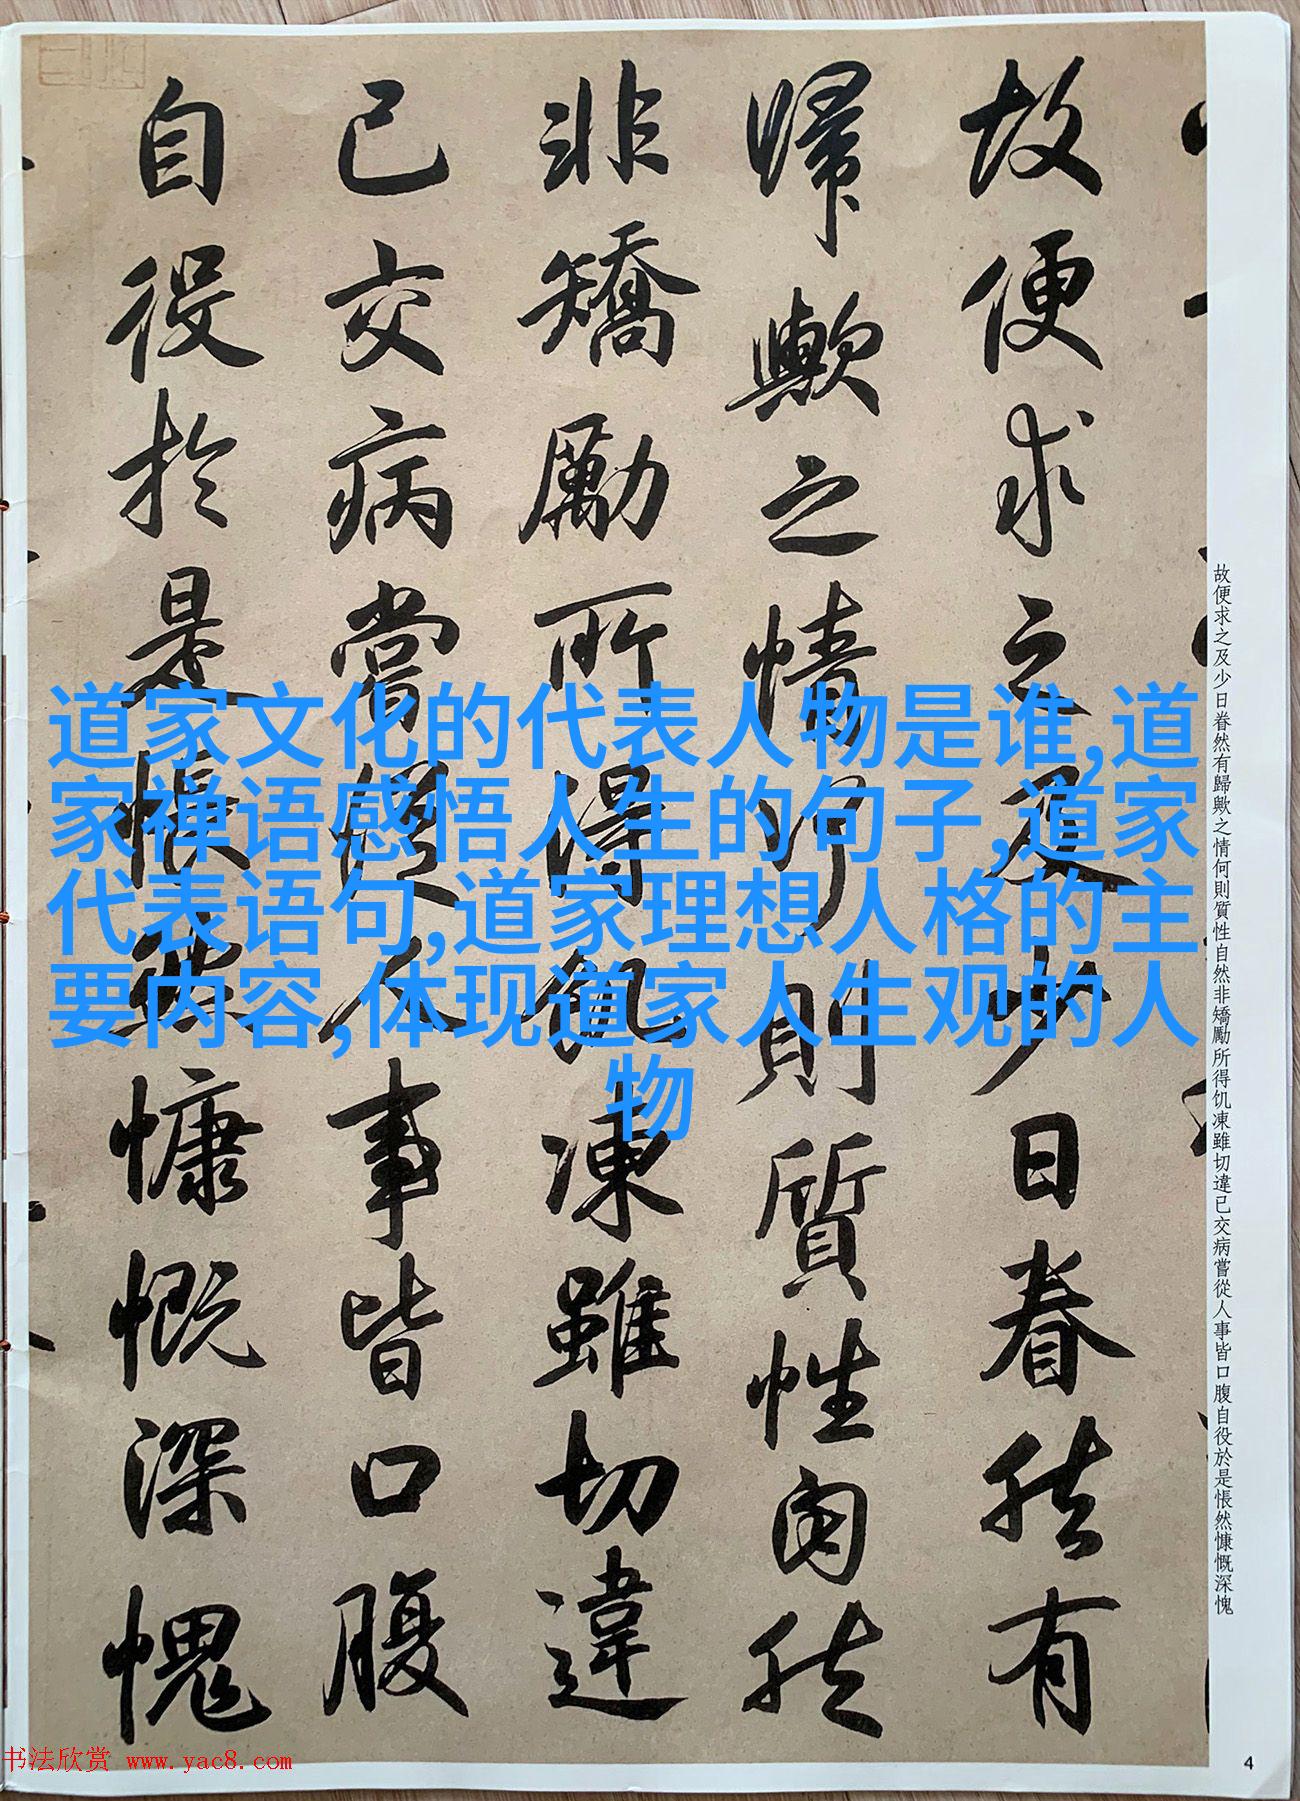 道家文化的代表人物是谁,道
家禅语感悟人生的句子,道家
代表语句,道家理想人格的主
要内容,体现道家人生观的人
物
故便求之及少日眷然有
歸歟之情何則質性自然
非矯勵所得飢凍雖切違
已交病嘗從人事皆口腹
自役於是悵然慷慨深愧
故便求之及少日眷然有歸歟之情何則質性自然非矯勵所得饥凍雖切違已交病嘗從人事皆口腹自役於是悵然慷慨深愧
书法欣赏 www.yac8.com
4